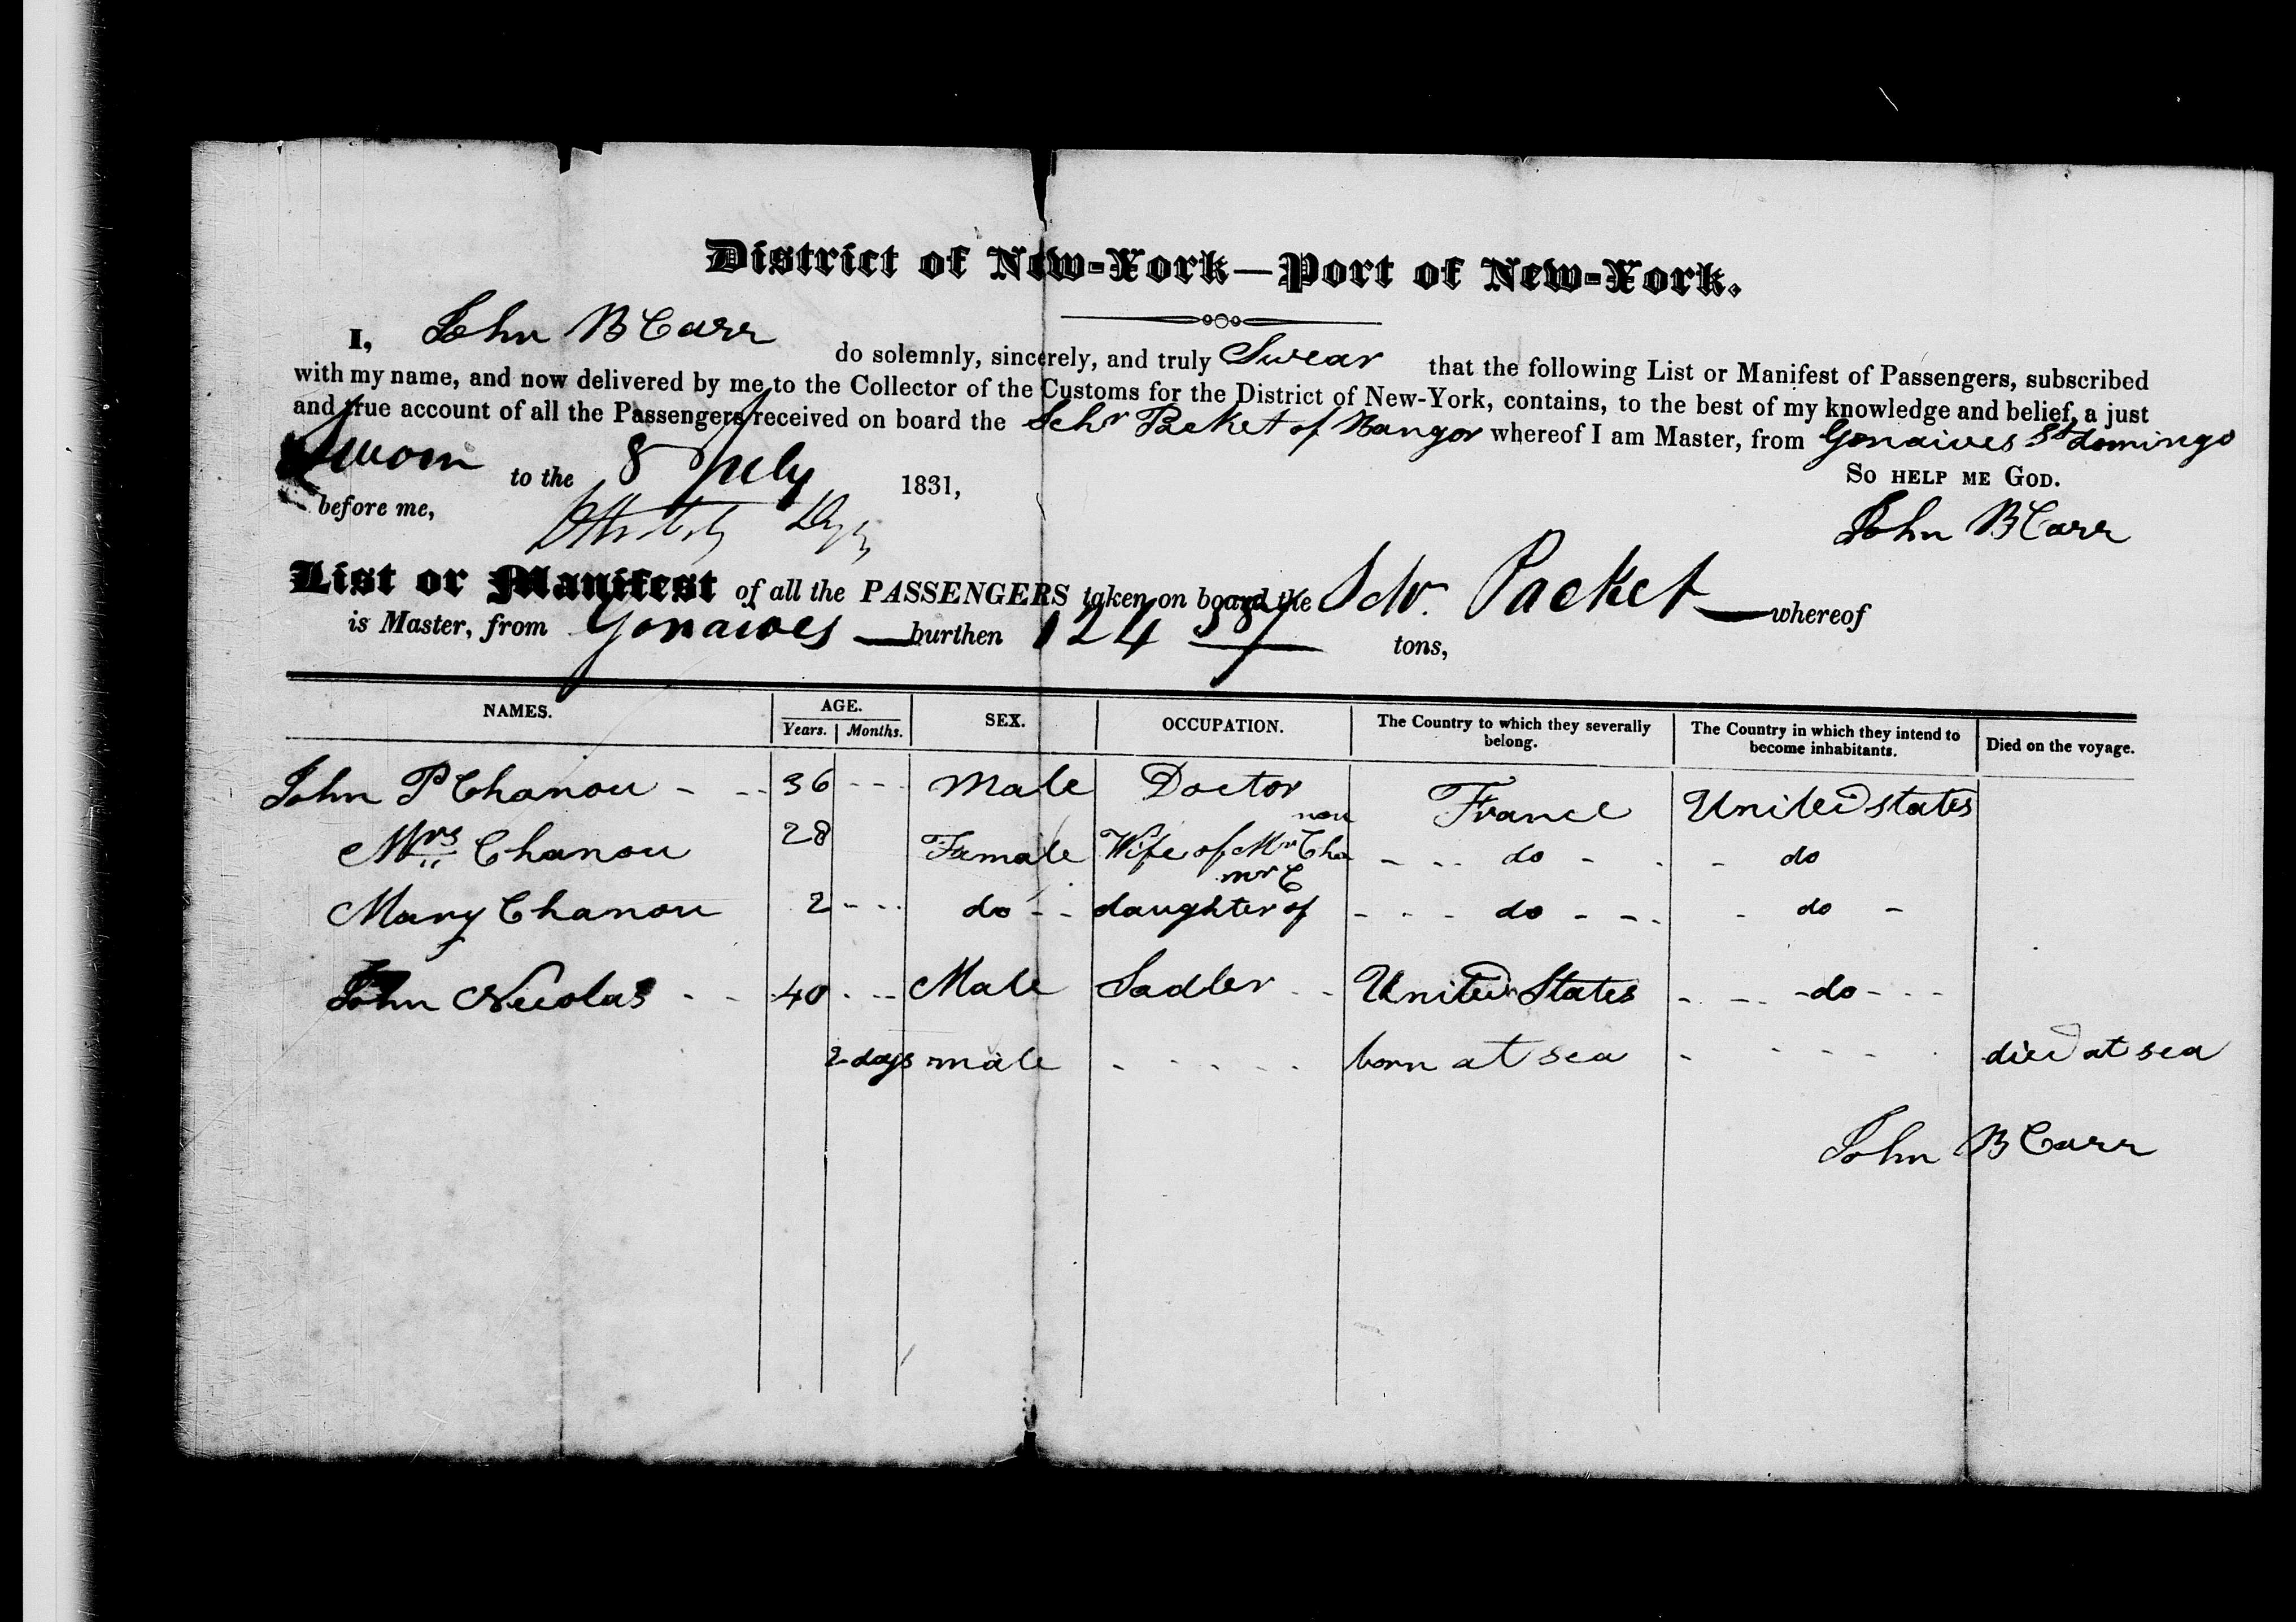 District of New-York—Port of New-York.
I, John B Carr do solemnly, sincerely, and truly Swear that the following List or Manifest of Passengers, subscribed
with my name, and now delivered by me to the Collector of the Customs for the District of New-York, contains, to the best of my knowledge and belief, a just
and true account of all the Passengers received on board the Schr Packet of Bangor whereof I am Master, from Gonaives St domingo
Sworn to the 8 July 1831, So help me God.
before me, John B Carr
List or Manifest of all the PASSENGERS taken on board the Schr. Packet whereof
is Master, from Gonaives burthen 124 tons,
NAMES. AGE. SEX. OCCUPATION. The Country to which they severally belong. The Country in which they intend to become inhabitants. Died on the voyage.
Years. Months.
John P Chanou - - - 36 - - - Male Doctor France United states
Mrs Chanou 28 Famale Wife of Mr Cha nou - - - do - - - do
Mary Chanou 2 - - - do - - daughter of mr C - - - do - - - - do -
John Nicolas - - 40 - - - Male Sadler - - United States - - - do - - -
2 days male - - - - - born at sea - - - - - - died at sea
John B Carr